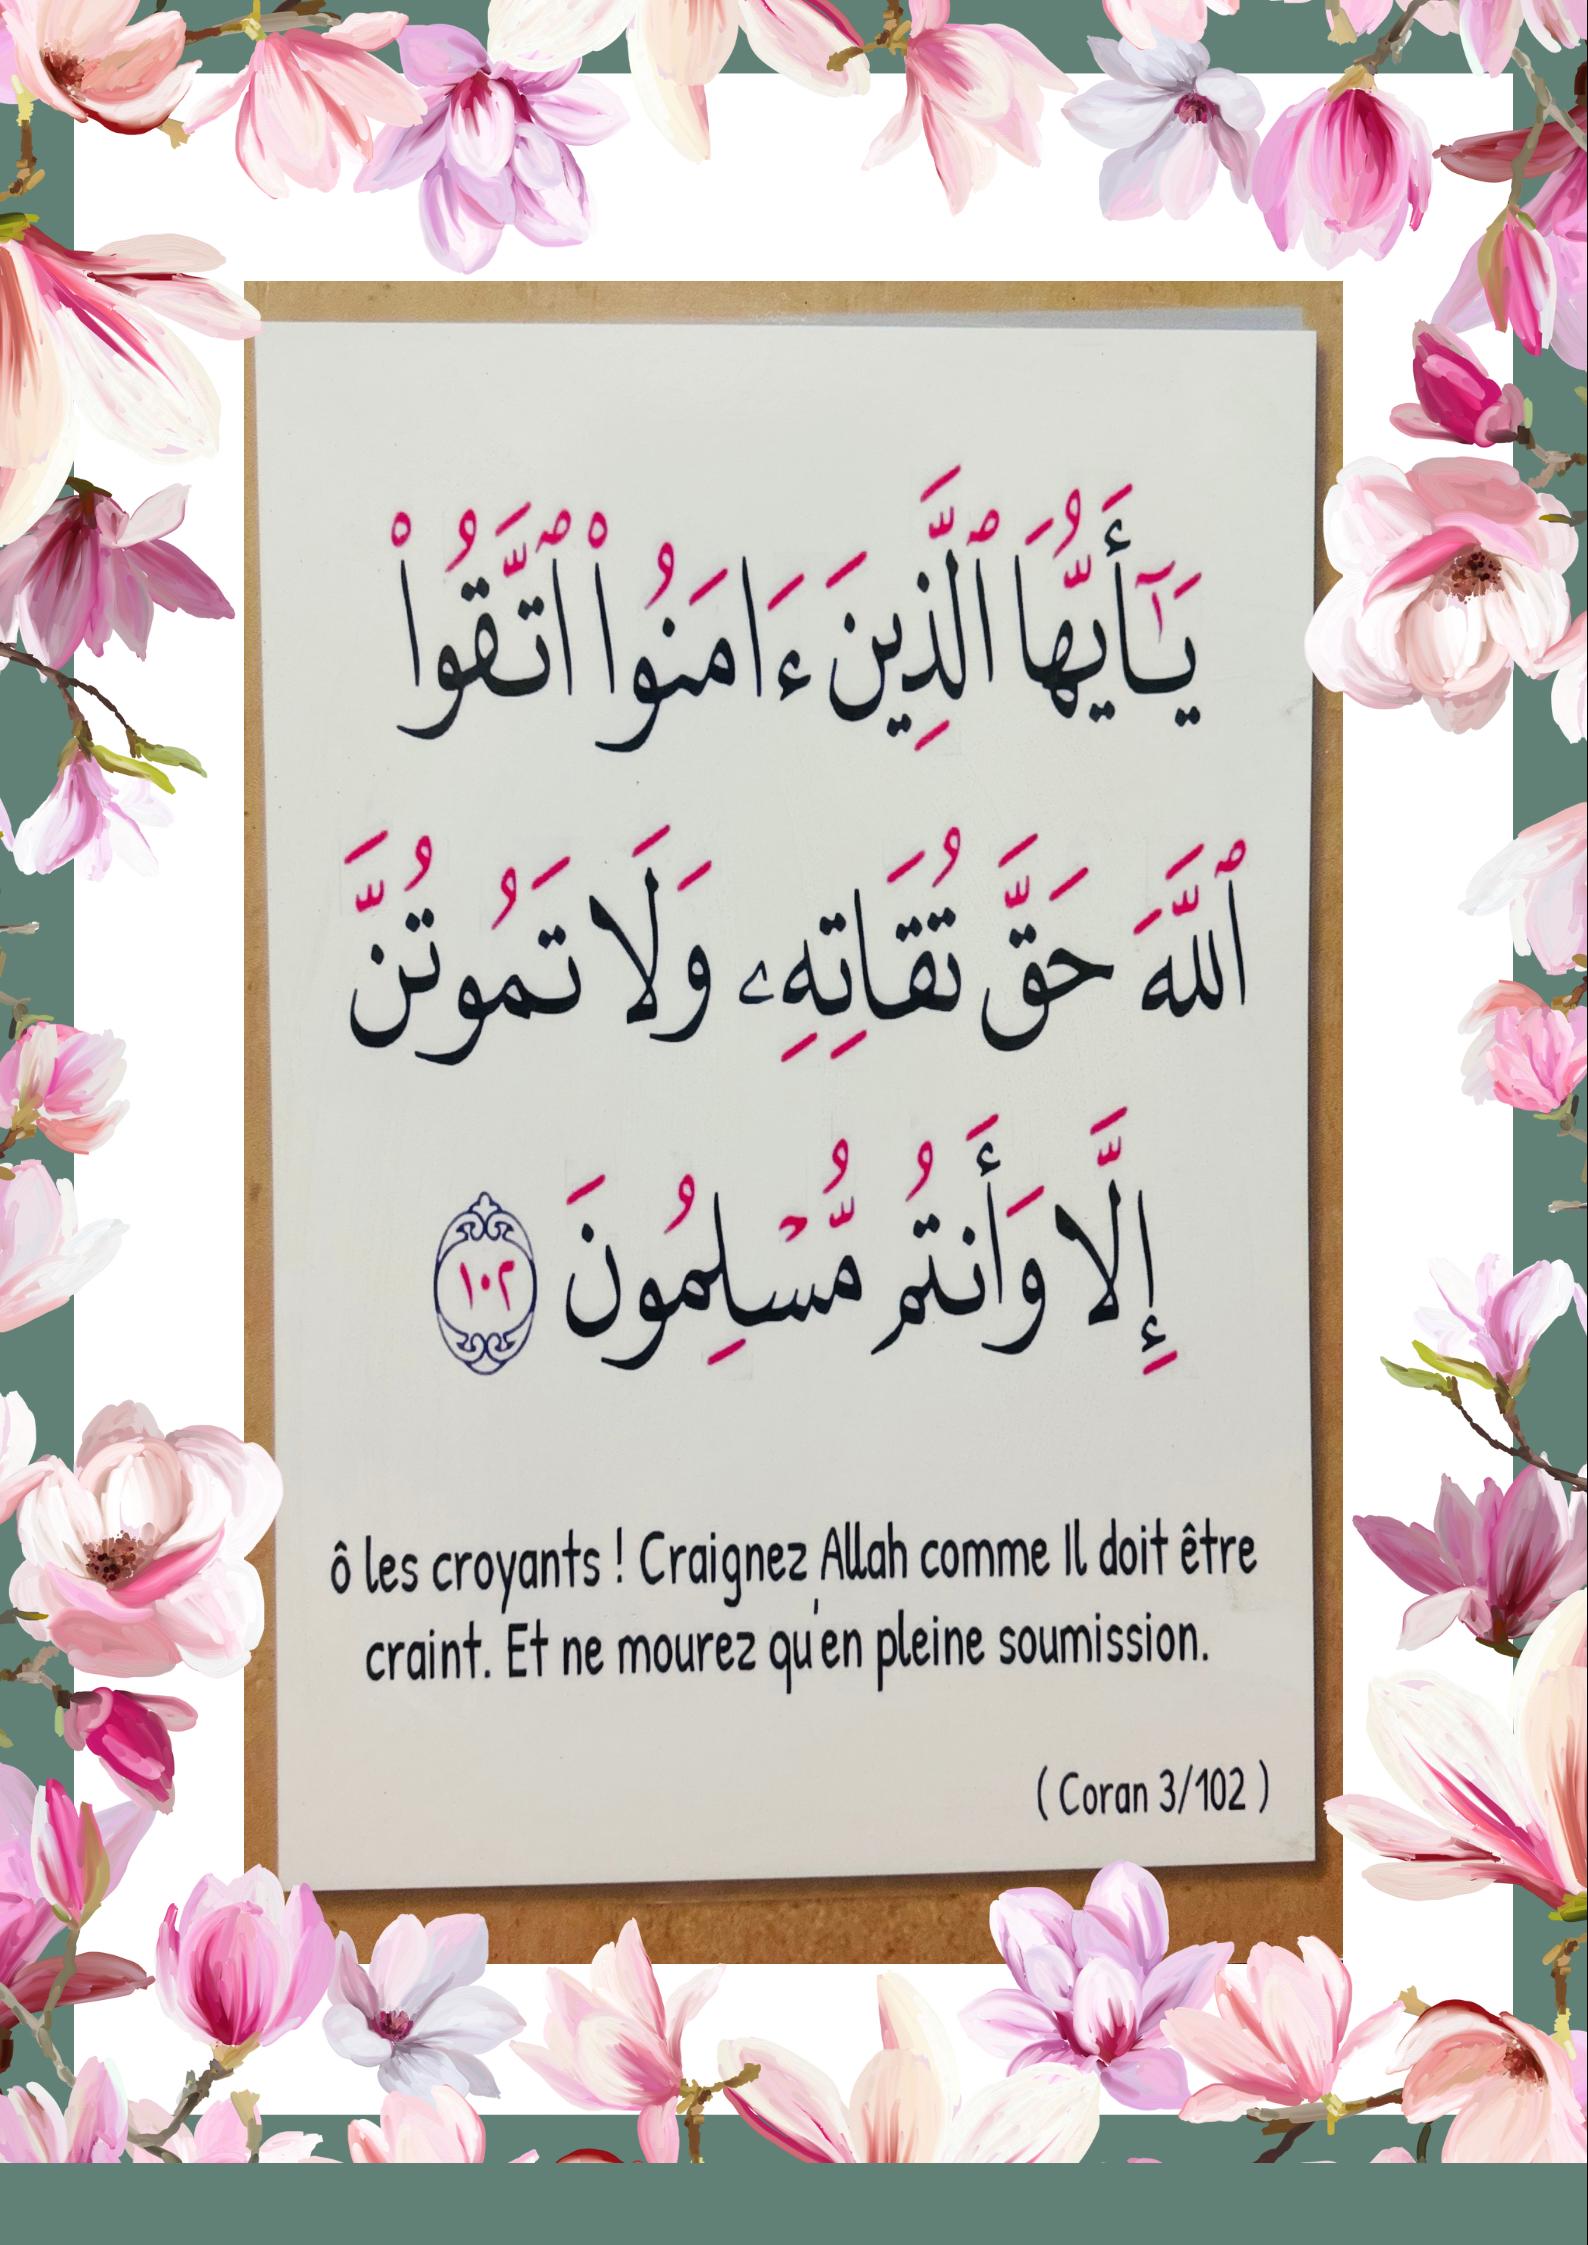 يَـٰٓأَيُّهَا ٱلَّذِينَ ءَامَنُوا۟ ٱتَّقُوا۟
ٱللَّهَ حَقَّ تُقَاتِهِۦ وَلَا تَمُوتُنَّ
إِلَّا وَأَنتُم مُّسْلِمُونَ ١٠٢
ô les croyants ! Craignez Allah comme Il doit être
craint. Et ne mourez qu'en pleine soumission.
( Coran 3/102 )